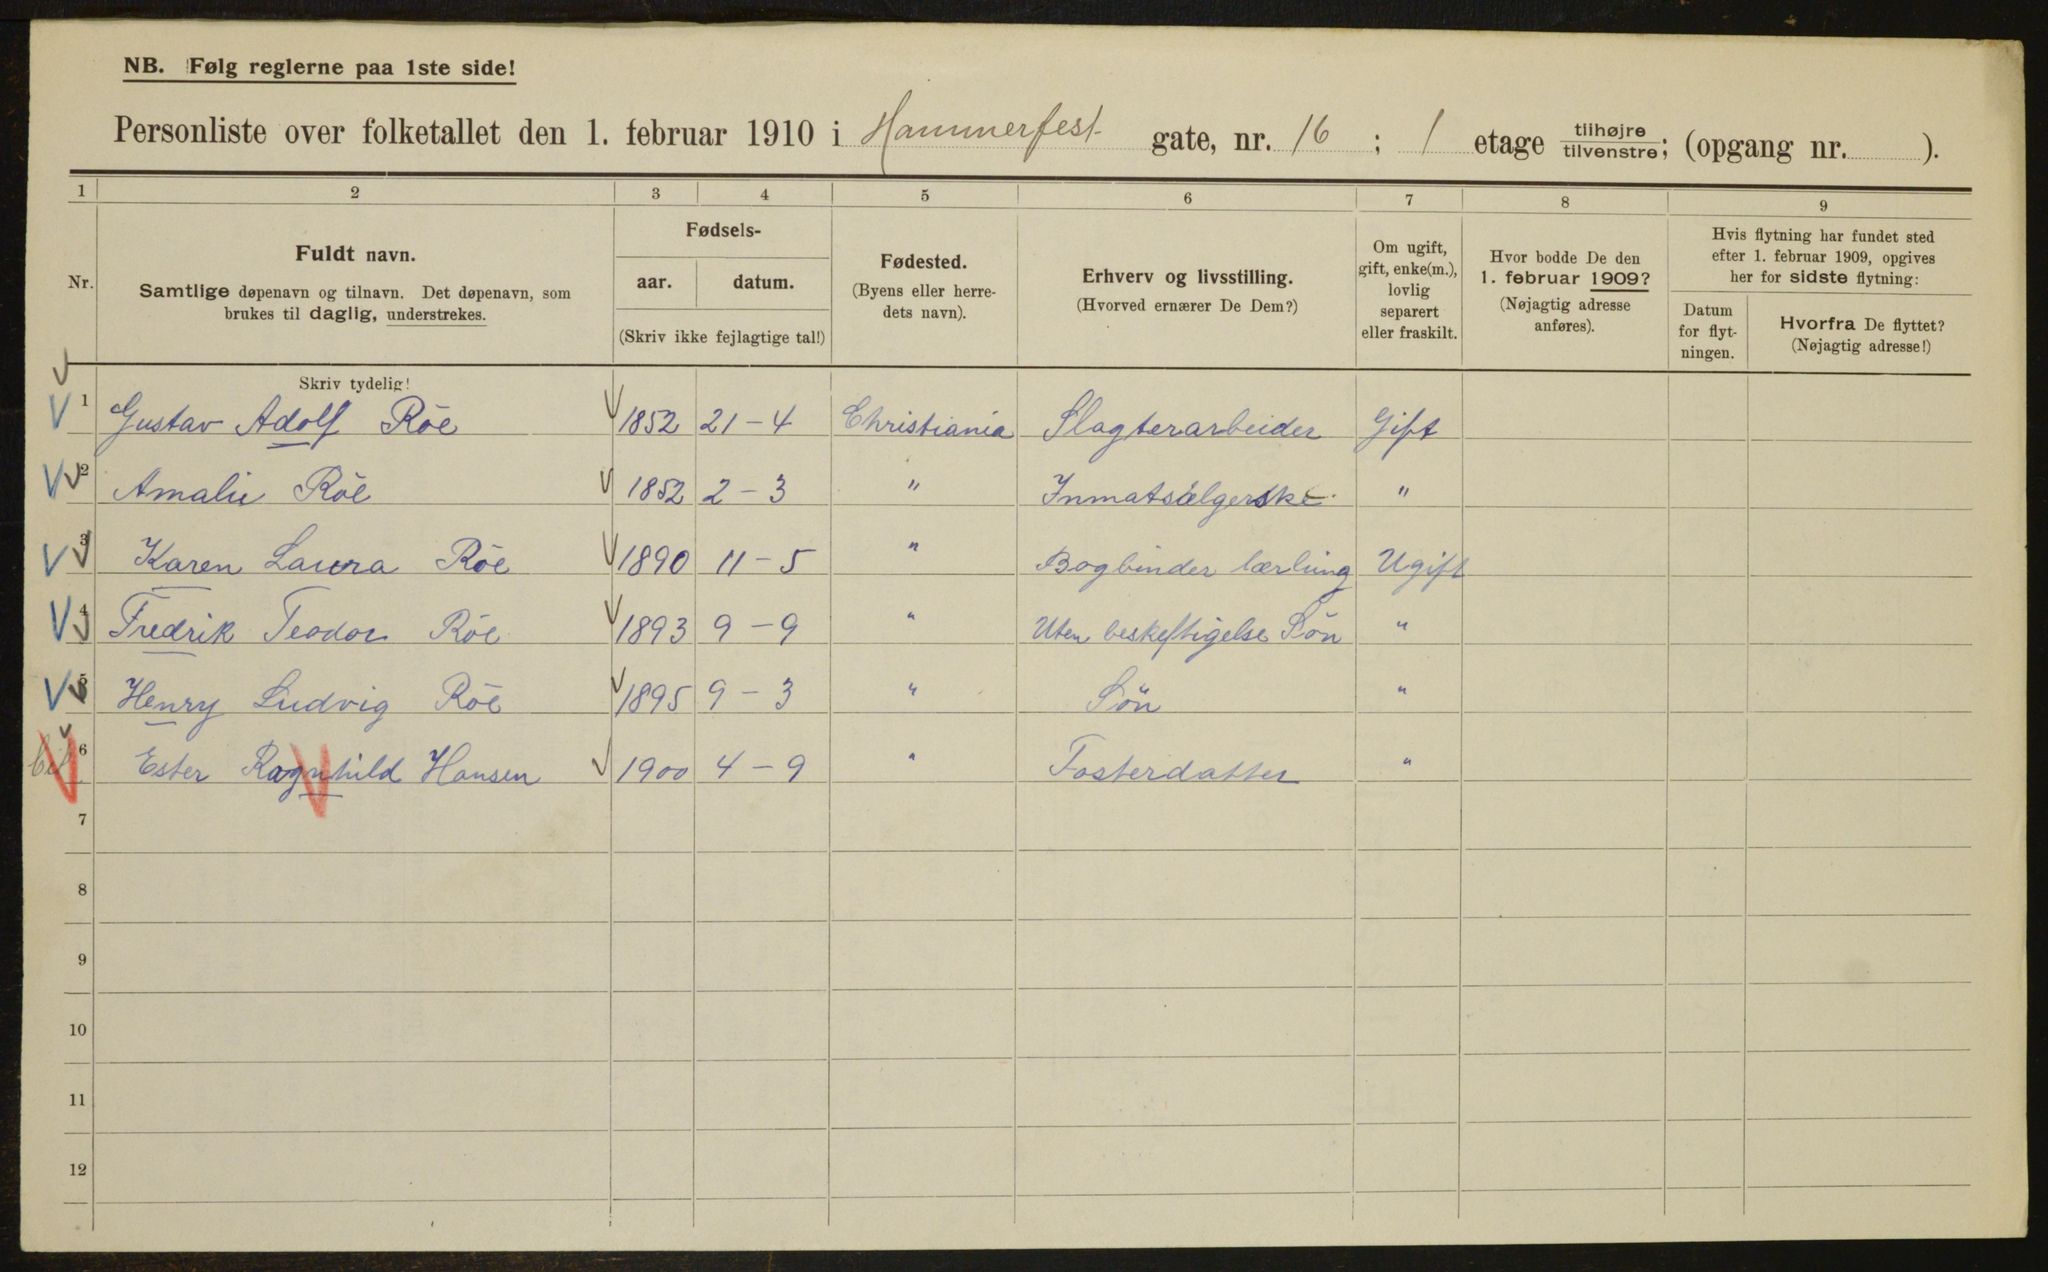 NB. Følg reglerne paa 1ste side!
Personliste over folketallet den 1. februar 1910 i Hammerfest gate, nr. 16 ; 1 etage tilhøjre/tilvenstre; (opgang nr. ).
1 2 3 4 5 6 7 8 9
Nr. Fuldt navn. Samtlige døpenavn og tilnavn. Det døpenavn, som brukes til daglig, understrekes. Skriv tydelig!
Fødsels-
aar. datum.
(Skriv ikke fejlagtige tal!)
Fødested. (Byens eller herredets navn).
Erhverv og livsstilling. (Hvorved ernærer De Dem?)
Om ugift, gift, enke(m.), lovlig separert eller fraskilt.
Hvor bodde De den 1. februar 1909? (Nøjagtig adresse anføres).
Hvis flytning har fundet sted efter 1. februar 1909, opgives her for sidste flytning:
Datum for flytningen.
Hvorfra De flyttet? (Nøjagtig adresse!)
1 Gustav Adolf Röe 1852 21-4 Christiania Slagterarbeider Gift
2 Amalie Röe 1852 2-3 " Inmatsälgerske "
3 Karen Laura Röe 1890 11-5 " Bogbinder lærling Ugift
4 Fredrik Teodor Röe 1893 9-9 " Uten beskeftigelse Sön "
5 Henry Ludvig Röe 1895 9-3 " Sön "
6 Ester Ragnhild Hansen 1900 4-9 " Fosterdatter "
7
8
9
10
11
12